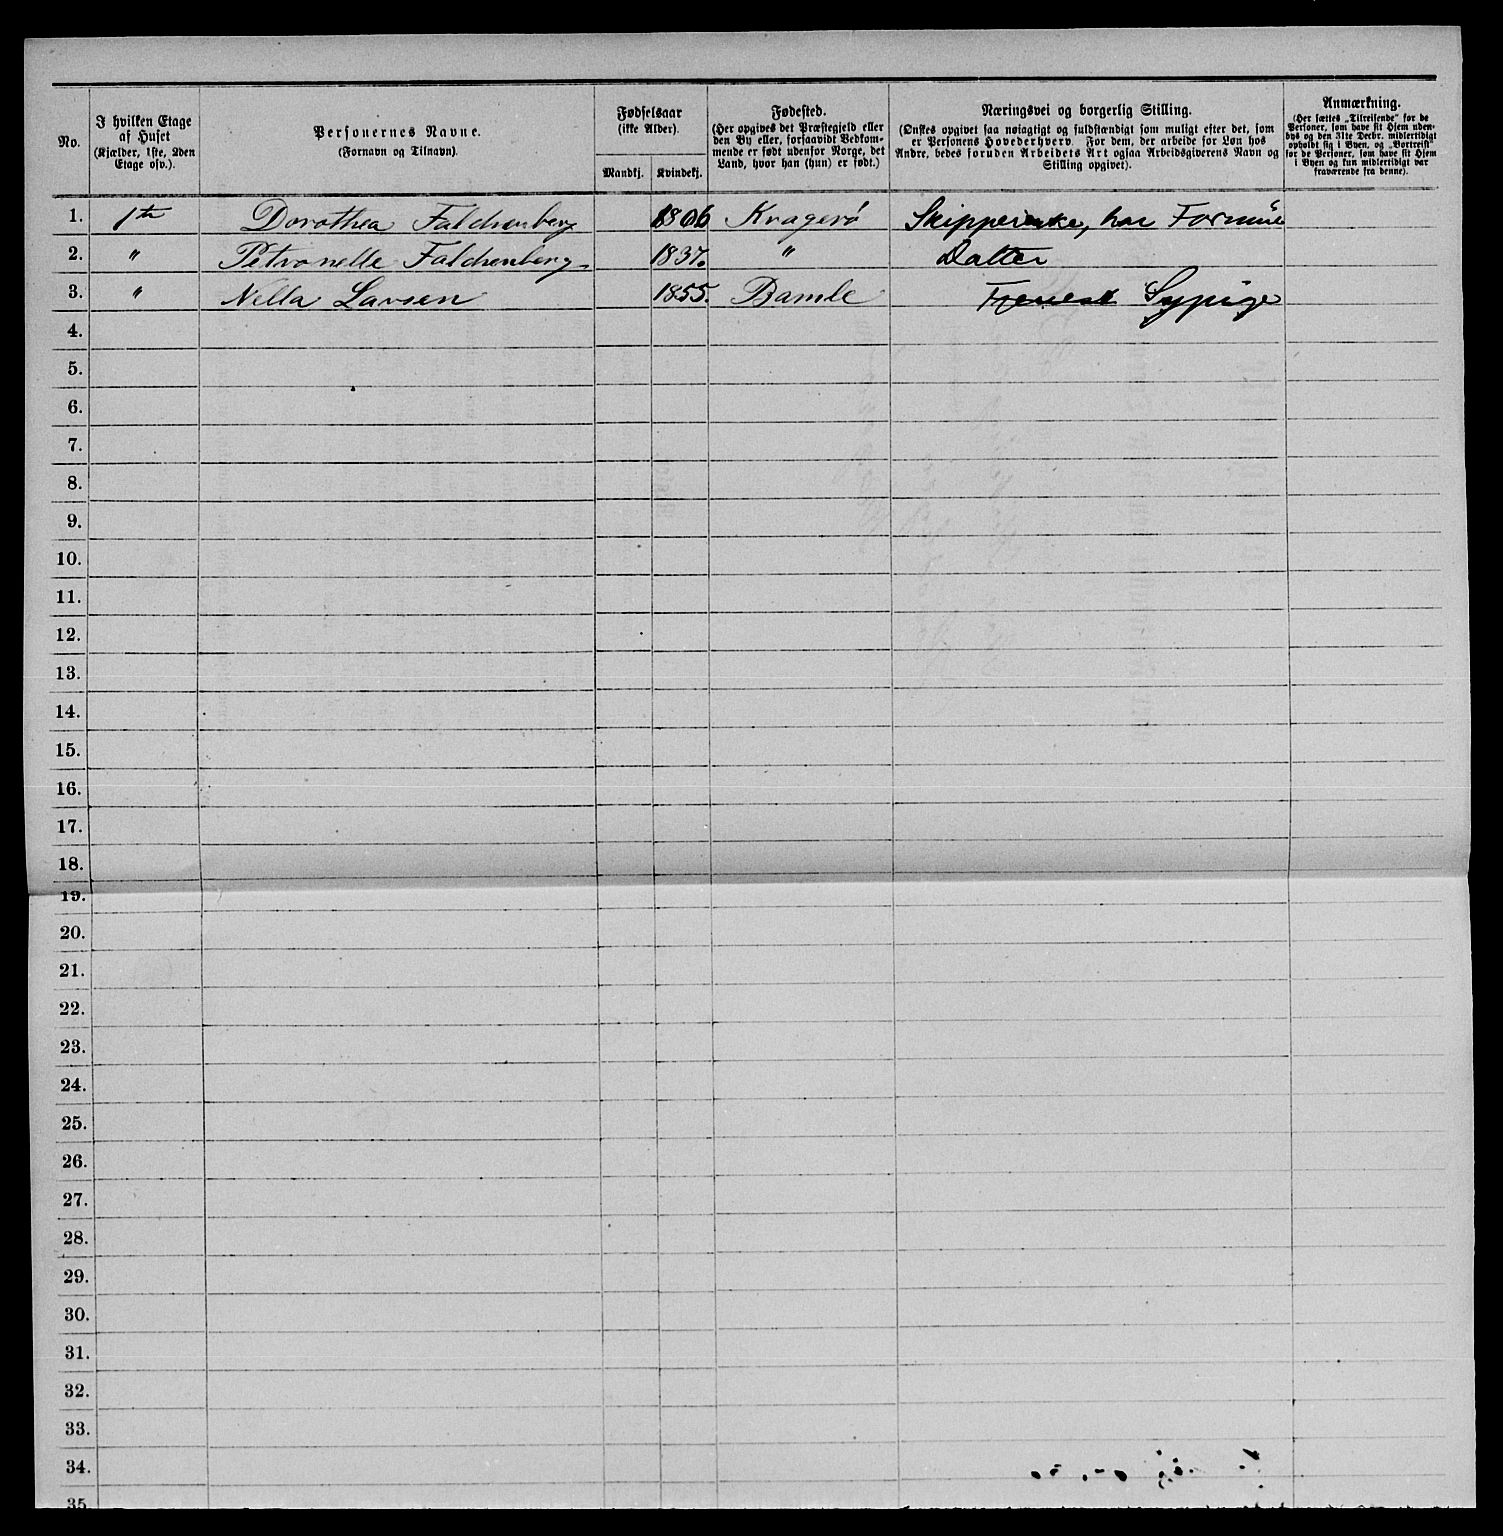 No.
I hvilken Etage
af Huset
(Kjælder, 1ste, 2den
Etage osv.).
Personernes Navne.
(Fornavn og Tilnavn).
Fødselsaar
(ikke Alder).
Mandkj.
Kvindekj.
Fødested.
(Her opgives det Præstegjeld eller
den By eller, forsaavidt Vedkom-
mende er født udenfor Norge, det
Land, hvor han (hun) er født.)
Næringsvei og borgerlig Stilling.
(Ønskes opgivet saa nøiagtigt og fuldstændigt som muligt efter det, som
er Personens Hovederhverv. For dem, der arbeide for Løn hos
Andre, bedes foruden Arbeidets Art ogsaa Arbeidsgiverens Navn og
Stilling opgivet).
Anmærkning.
(Her sættes „Tilreisende“ for de
Personer, som have sit Hjem uden-
bys og den 31te Decbr. midlertidigt
opholdt sig i Byen, og „Bortreist“
for de Personer, som have sit Hjem
i Byen og kun midlertidigt var
fraværende fra denne).
1. 1te Dorothea Falchenberg 1806 Kragerø Skipperenke, har Formue
2. " Petronelle Falchenberg 1837. " Datter
3. " Nella Larsen 1855. Bamle Tjenest Sypige
4.
5.
6.
7.
8.
9.
10.
11.
12.
13.
14.
15.
16.
17.
18.
19.
20.
21.
22.
23.
24.
25.
26.
27.
28.
29.
30.
31.
32.
33.
34.
35.